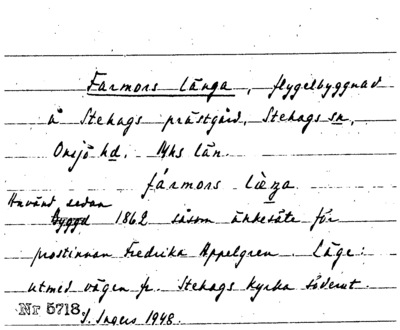 Farmors länga, flygelbyggnad
å Stehags prästgård, Stehags sn,
Onsjö hd. Mhs län.
fármors lèŋa
Använd sedan
Byggd 1862 såsom änkesäte för
prostinnan Fredrika Appelgren. Läge:
utmed vägen fr. Stehags kyrka söderut.
Nr 5718. S. Ingers 1948.